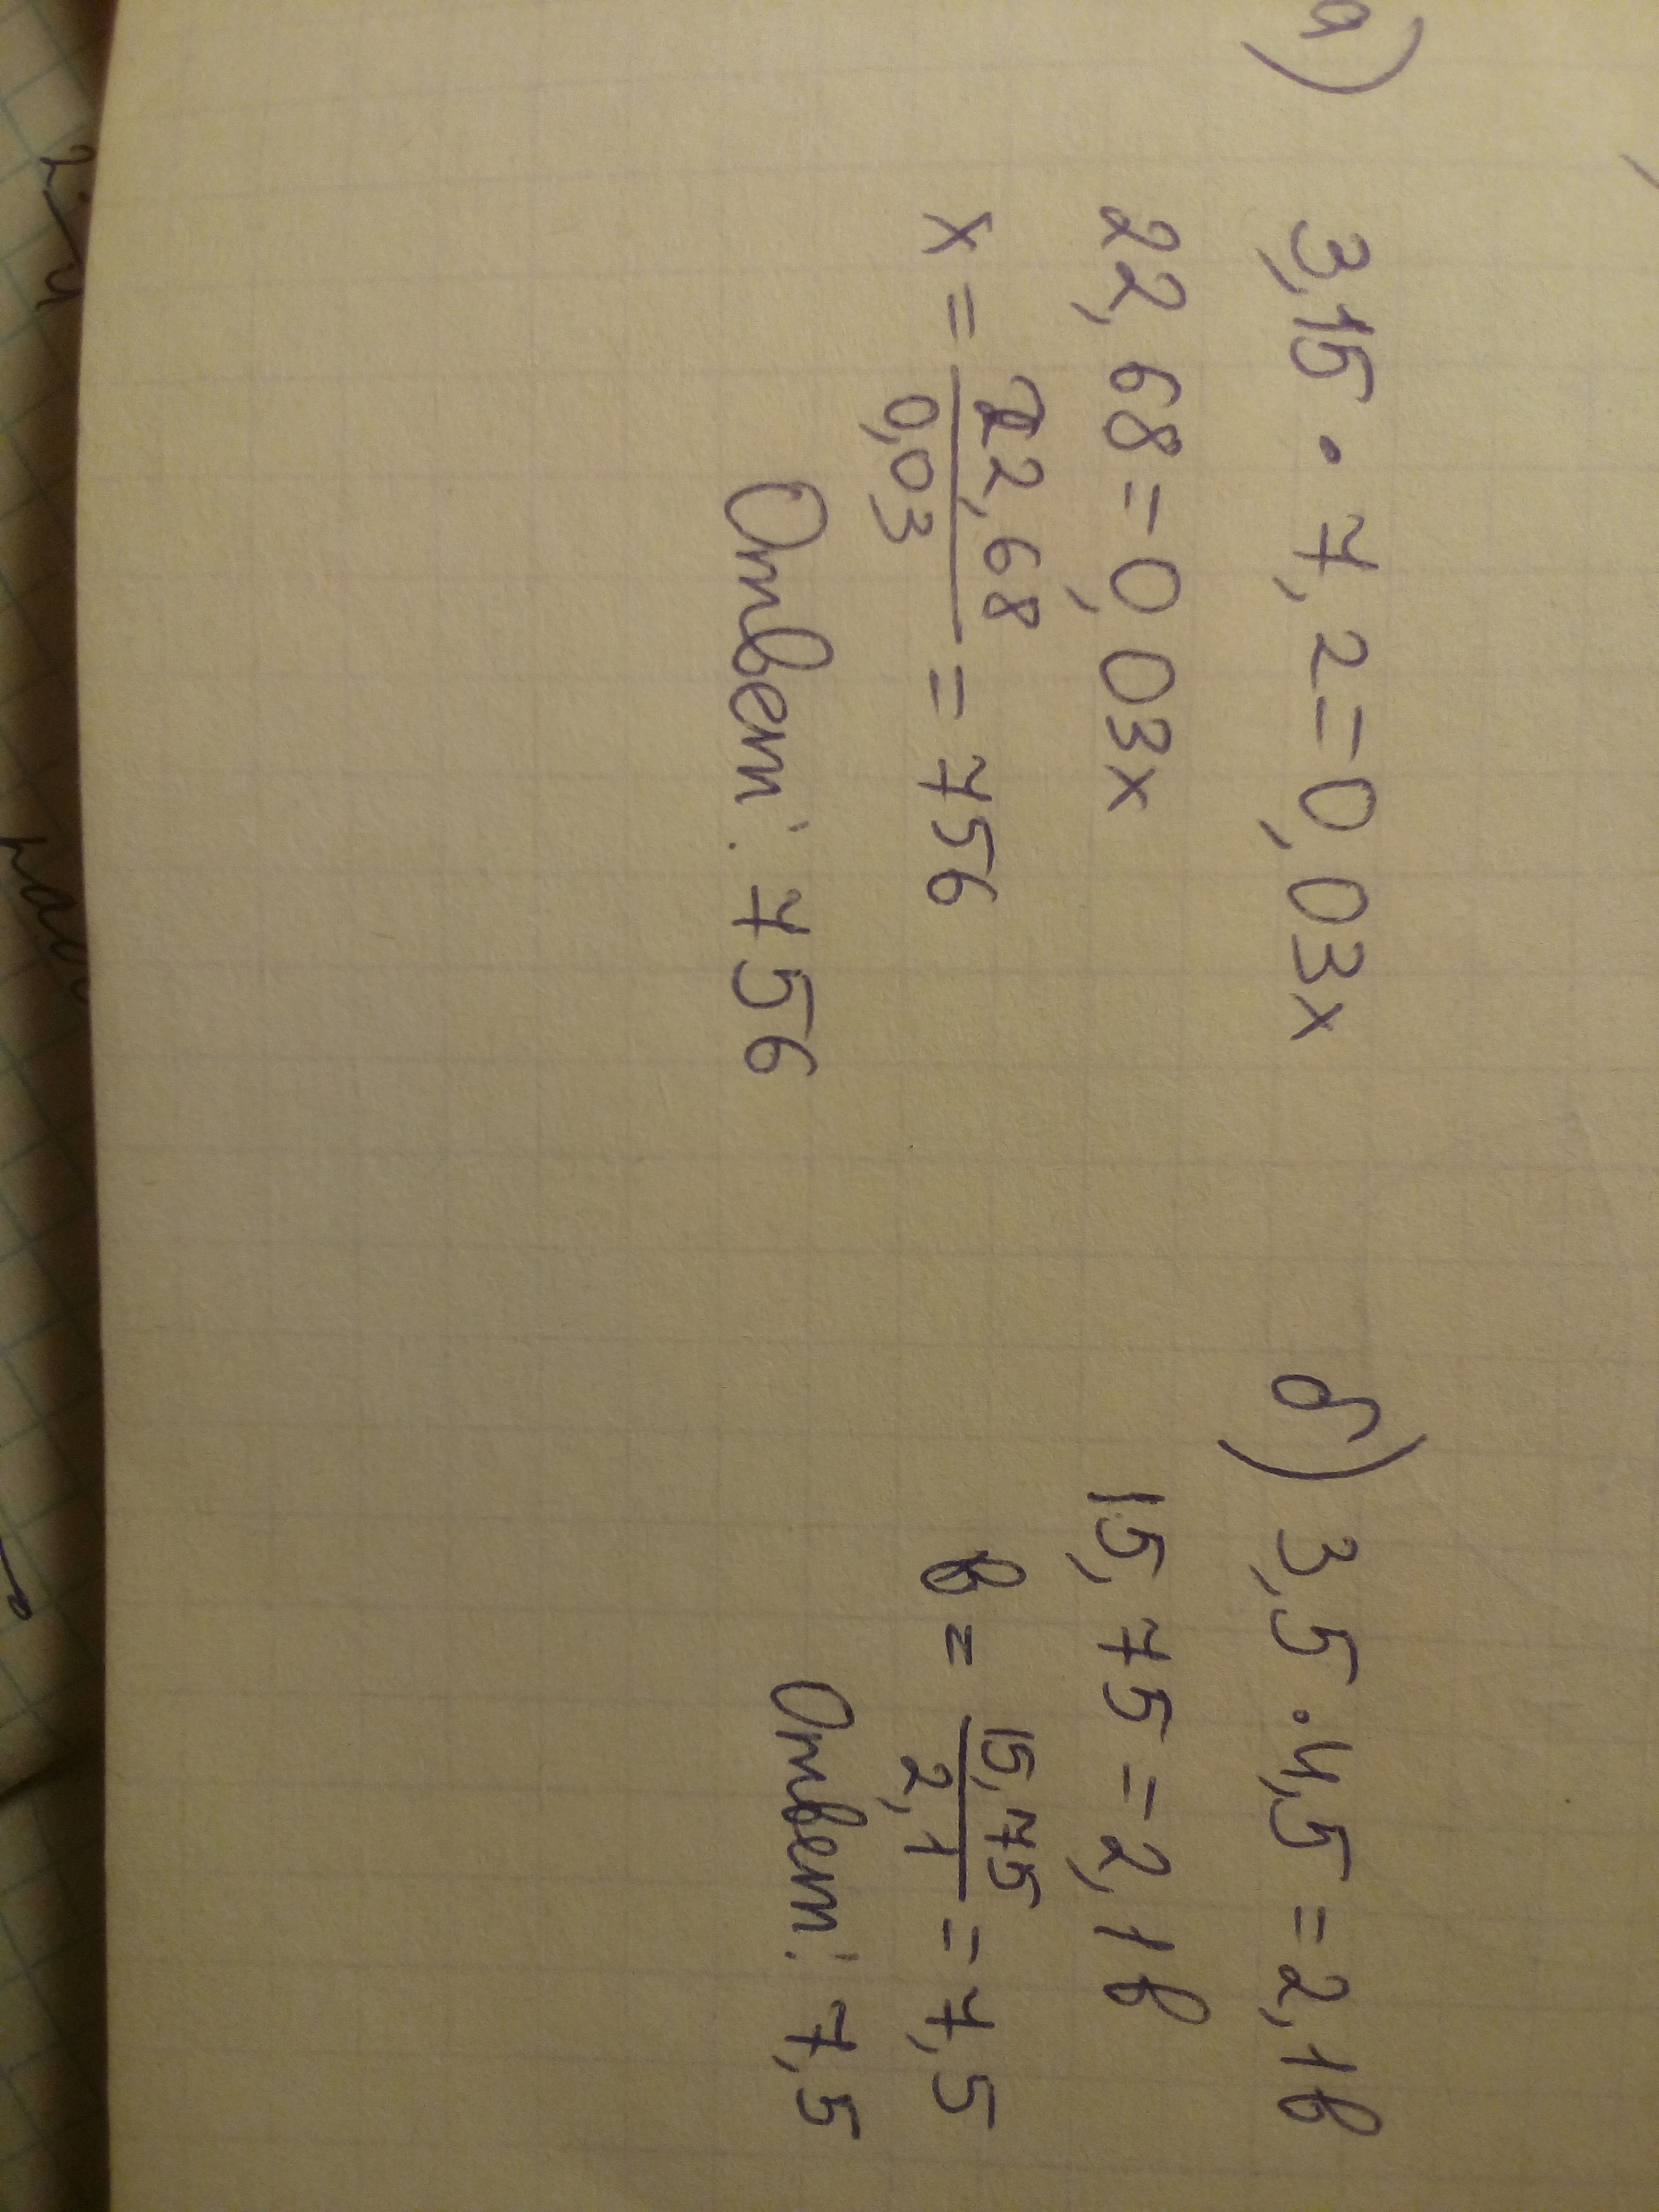 а) 3,15 · 7,2 = 0,03x
22,68 = 0,03x
x = 22,68 / 0,03 = 756
Ответ: 756
б) 3,5 · 4,5 = 2,1в
15,75 = 2,1в
в = 15,75 / 2,1 = 7,5
Ответ: 7,5